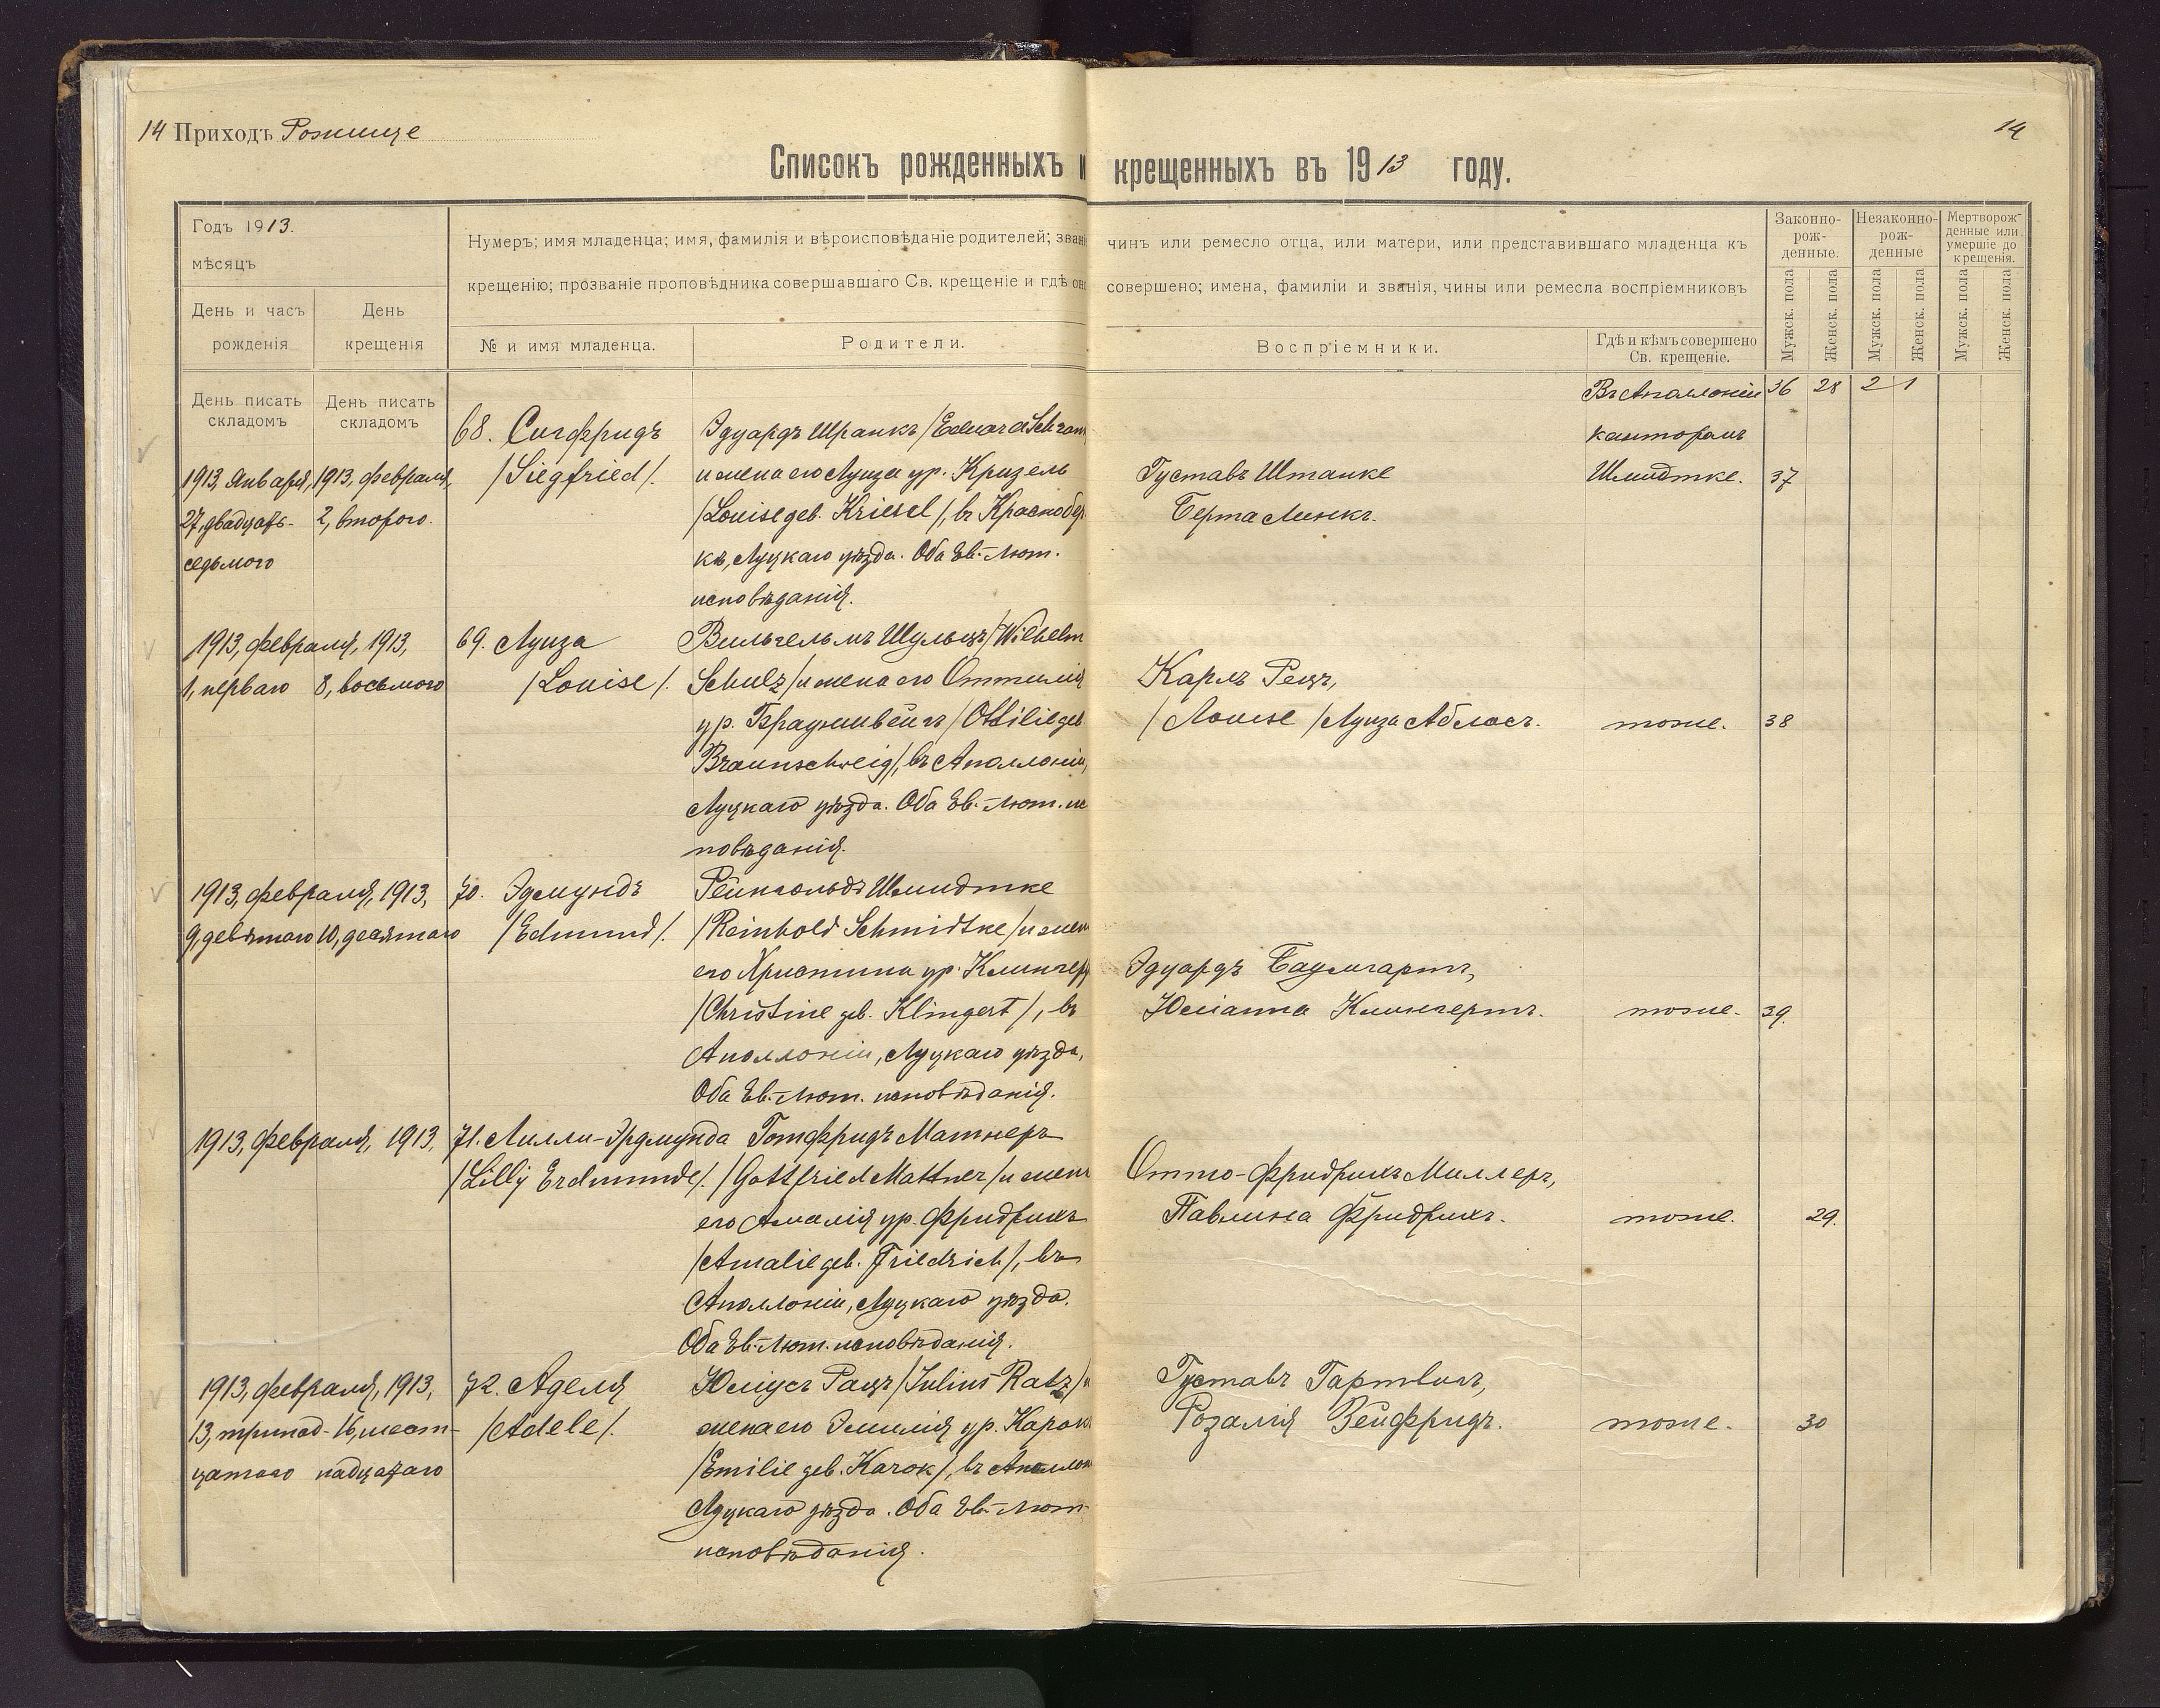 14 Приходъ Рожище
14
Списокъ рожденныхъ и крещенныхъ въ 1913 году.
Годъ 1913.
мѣсяцъ
День и часъ рожденія
День крещенія
День писать складомъ
День писать складомъ
Нумеръ; имя младенца; имя, фамилія и вѣроисповѣданіе родителей; зван чинъ или ремесло отца, или матери, или представившаго младенца къ
крещенію; прозваніе проповѣдника совершавшаго Св. крещеніе и гдѣ оно совершено; имена, фамиліи и званія, чины или ремесла воспріемниковъ
№ и имя младенца.
Родители.
Воспріемники.
Гдѣ и кѣмъ совершено
Св. крещеніе.
Законно-
рож-
денные.
Незаконно-
рож-
денные
Мертворож-
денные или
умершіе до
крещенія.
Мужск. пола
Женск. пола
Мужск. пола
Женск. пола
Мужск. пола
Женск. пола
36 28 2 1
1913, Января,
27, двадцать-
седьмого
1913, февраля,
2, второго.
68. Сигфридъ
/Siegfried/.
Эдуардъ Шранкъ /Eduard Schran
и жена его Луиза ур. Кризель
/Louise geb. Kriesel/, въ Краснобер
кѣ, Луцкаго уѣзда. Оба Ев.-Лют.
исповѣданія.
Густавъ Штанке
Берта Линкъ.
Въ Аполлоніи
канторомъ
Шмидтке.
37
1913, февраля,
1, перваго
1913,
8, восьмого
69. Луиза
/Louise/.
Вильгельмъ Шульцъ /Wilhelm
Schulz/ и жена его Оттилія
ур. Брауншвейгъ /Ottilie geb
Braunschweig/, въ Аполлоніи,
Луцкаго уѣзда. Оба Ев.-Лют. ис
повѣданія.
Карлъ Рецъ,
/Louise/ Луиза Аблосъ.
тоже.
38
1913, февраля,
9, девятаго
1913,
10, десятаго
70. Эдмундъ
/Edmund/.
Рейнгольдъ Шмидтке
/Reinhold Schmidtke/ и жен
его Христина ур. Клингер
/Christine geb. Klingert/, въ
Аполлоніи, Луцкаго уѣзда,
Оба Ев.-Лют. исповѣданія.
Эдуардъ Баумгартъ,
Юліанна Клингертъ.
тоже.
39.
1913, февраля,
1913,
71. Лилли-Эрдмунда
/Lilly Erdmunde/.
Готфридъ Матнеръ
/Gottfried Mattner/ и жен
его Амалія ур. Фридрихъ
/Amalie geb. Friedrich/, въ
Аполлоніи, Луцкаго уѣзда.
Оба Ев.-Лют. исповѣданія.
Отто-Фридрихъ Миллеръ,
Павлина Фридрихъ.
тоже.
29.
1913, февраля,
13, тринад-
цатаго
1913,
16, шест-
надцатаго
72. Аделя
/Adele/.
Юліусъ Рацъ /Julius Ratz/ и
жена его Эмилія ур. Карок
/Emilie geb. Karok/, въ Аполлон
Луцкаго уѣзда. Оба Ев.-Лют.
исповѣданія.
Густавъ Гартвигъ,
Розалія Зейфридъ.
тоже.
30